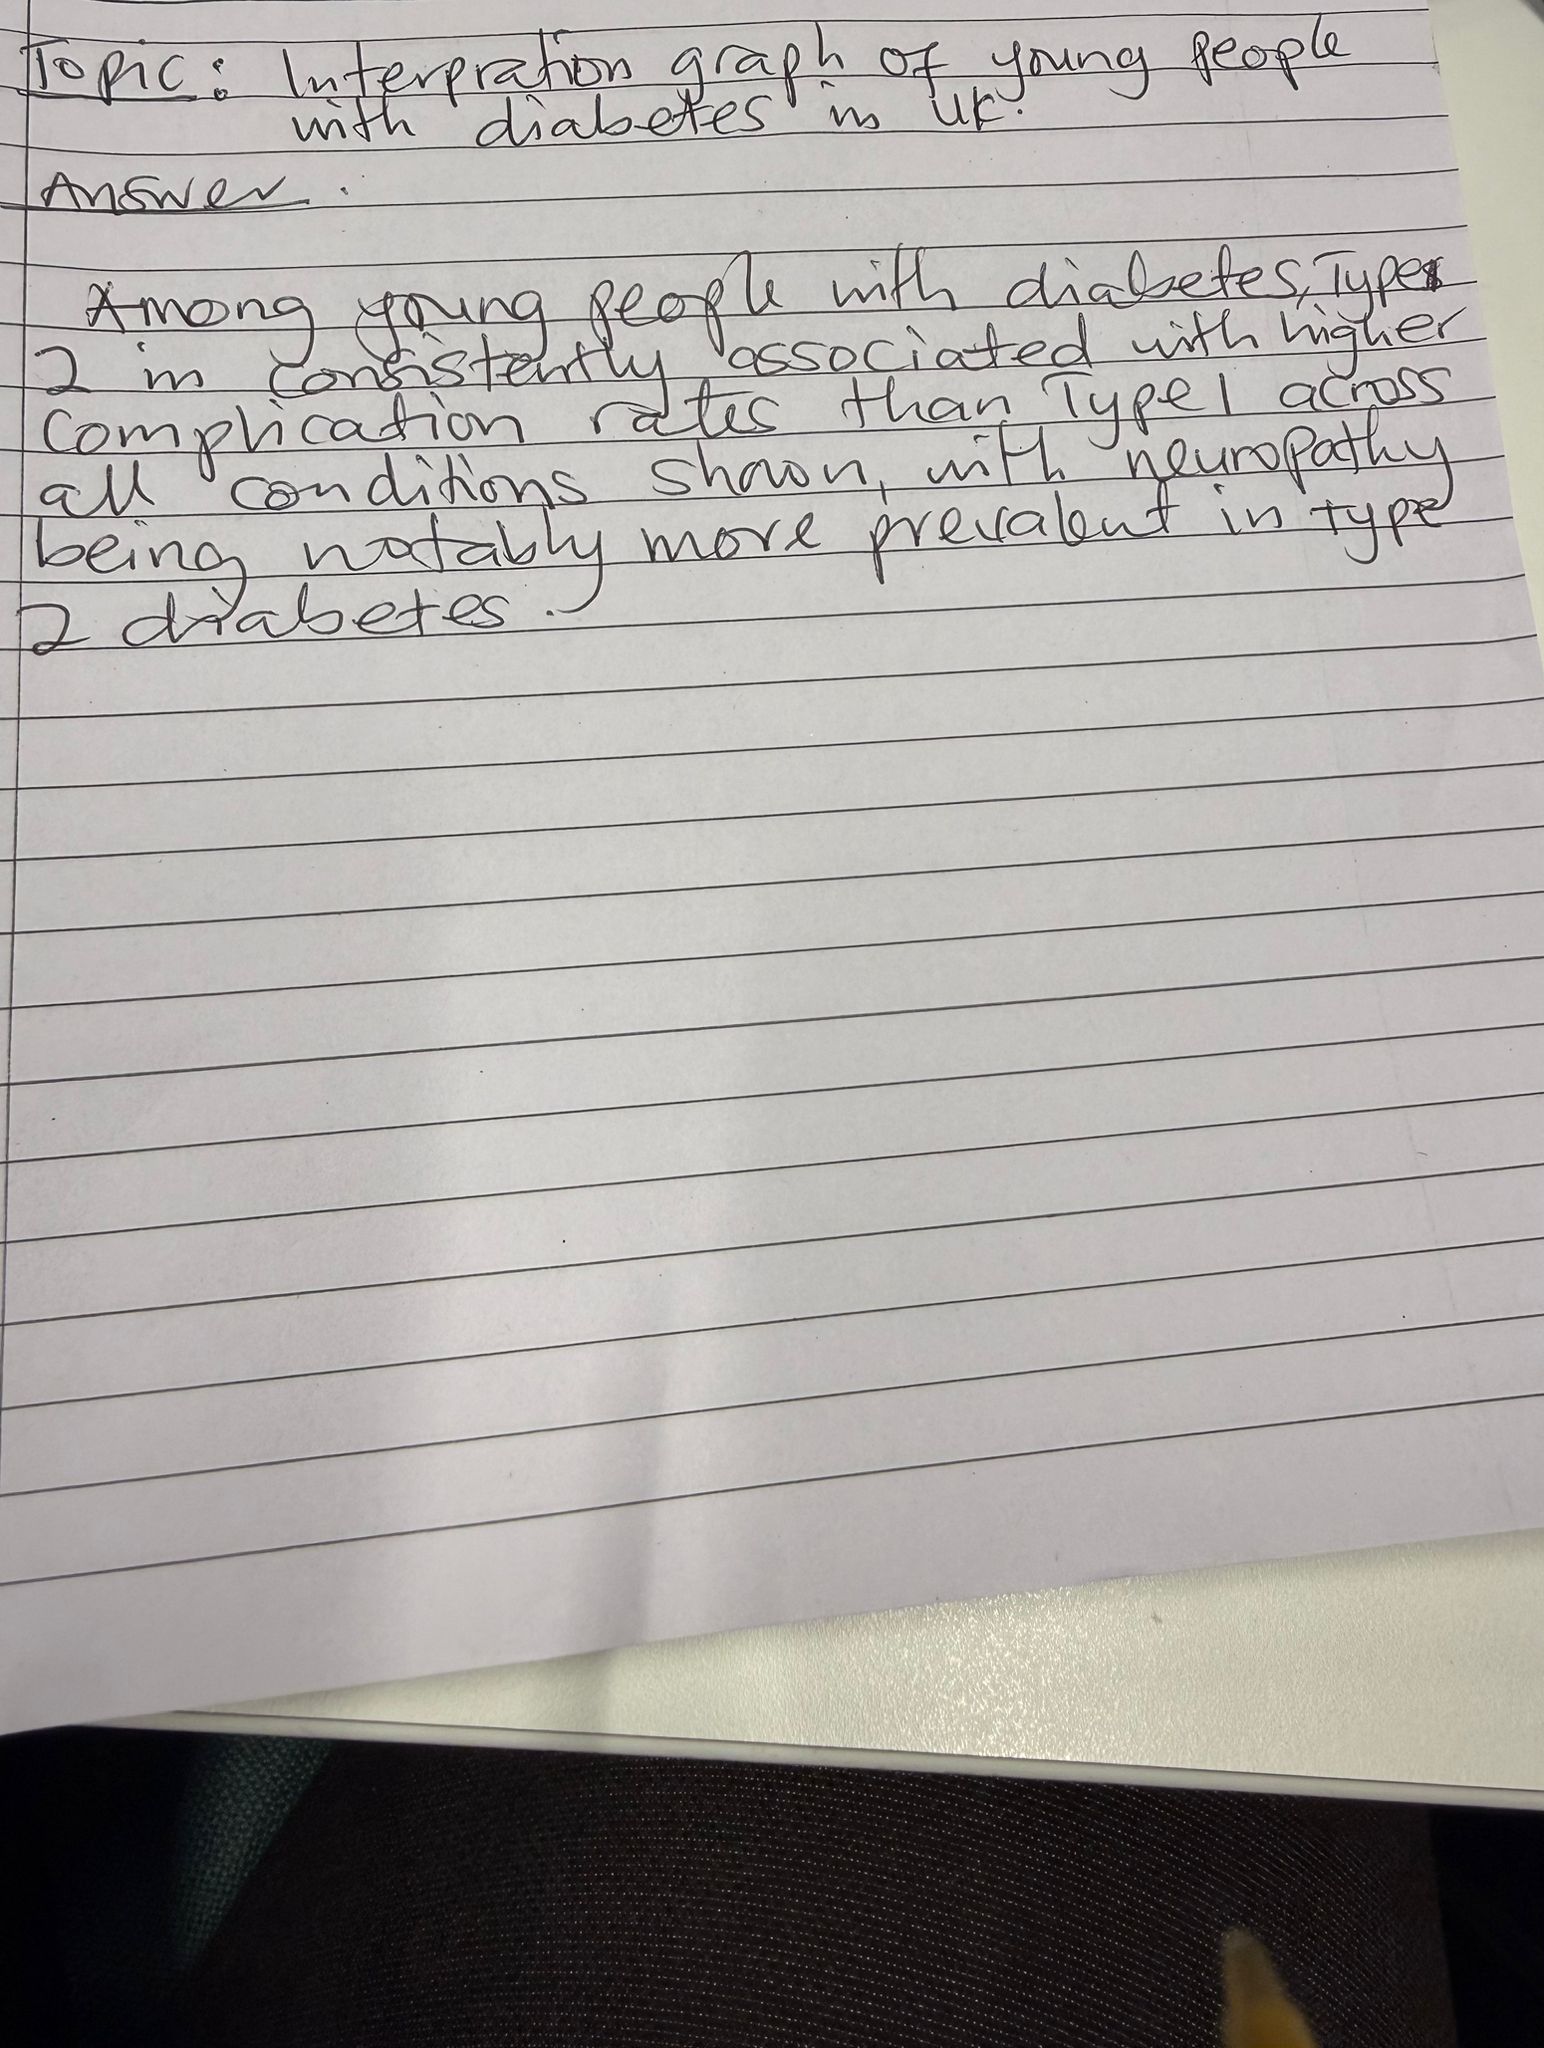 Topic: Interpration graph of young people
with diabetes in UK.
Answer.
Among young people with diabetes, Type
2 in consistently associated with higher
complication rates than Type 1 across
all conditions shown, with neuropathy
being notably more prevalent in type
2 diabetes.